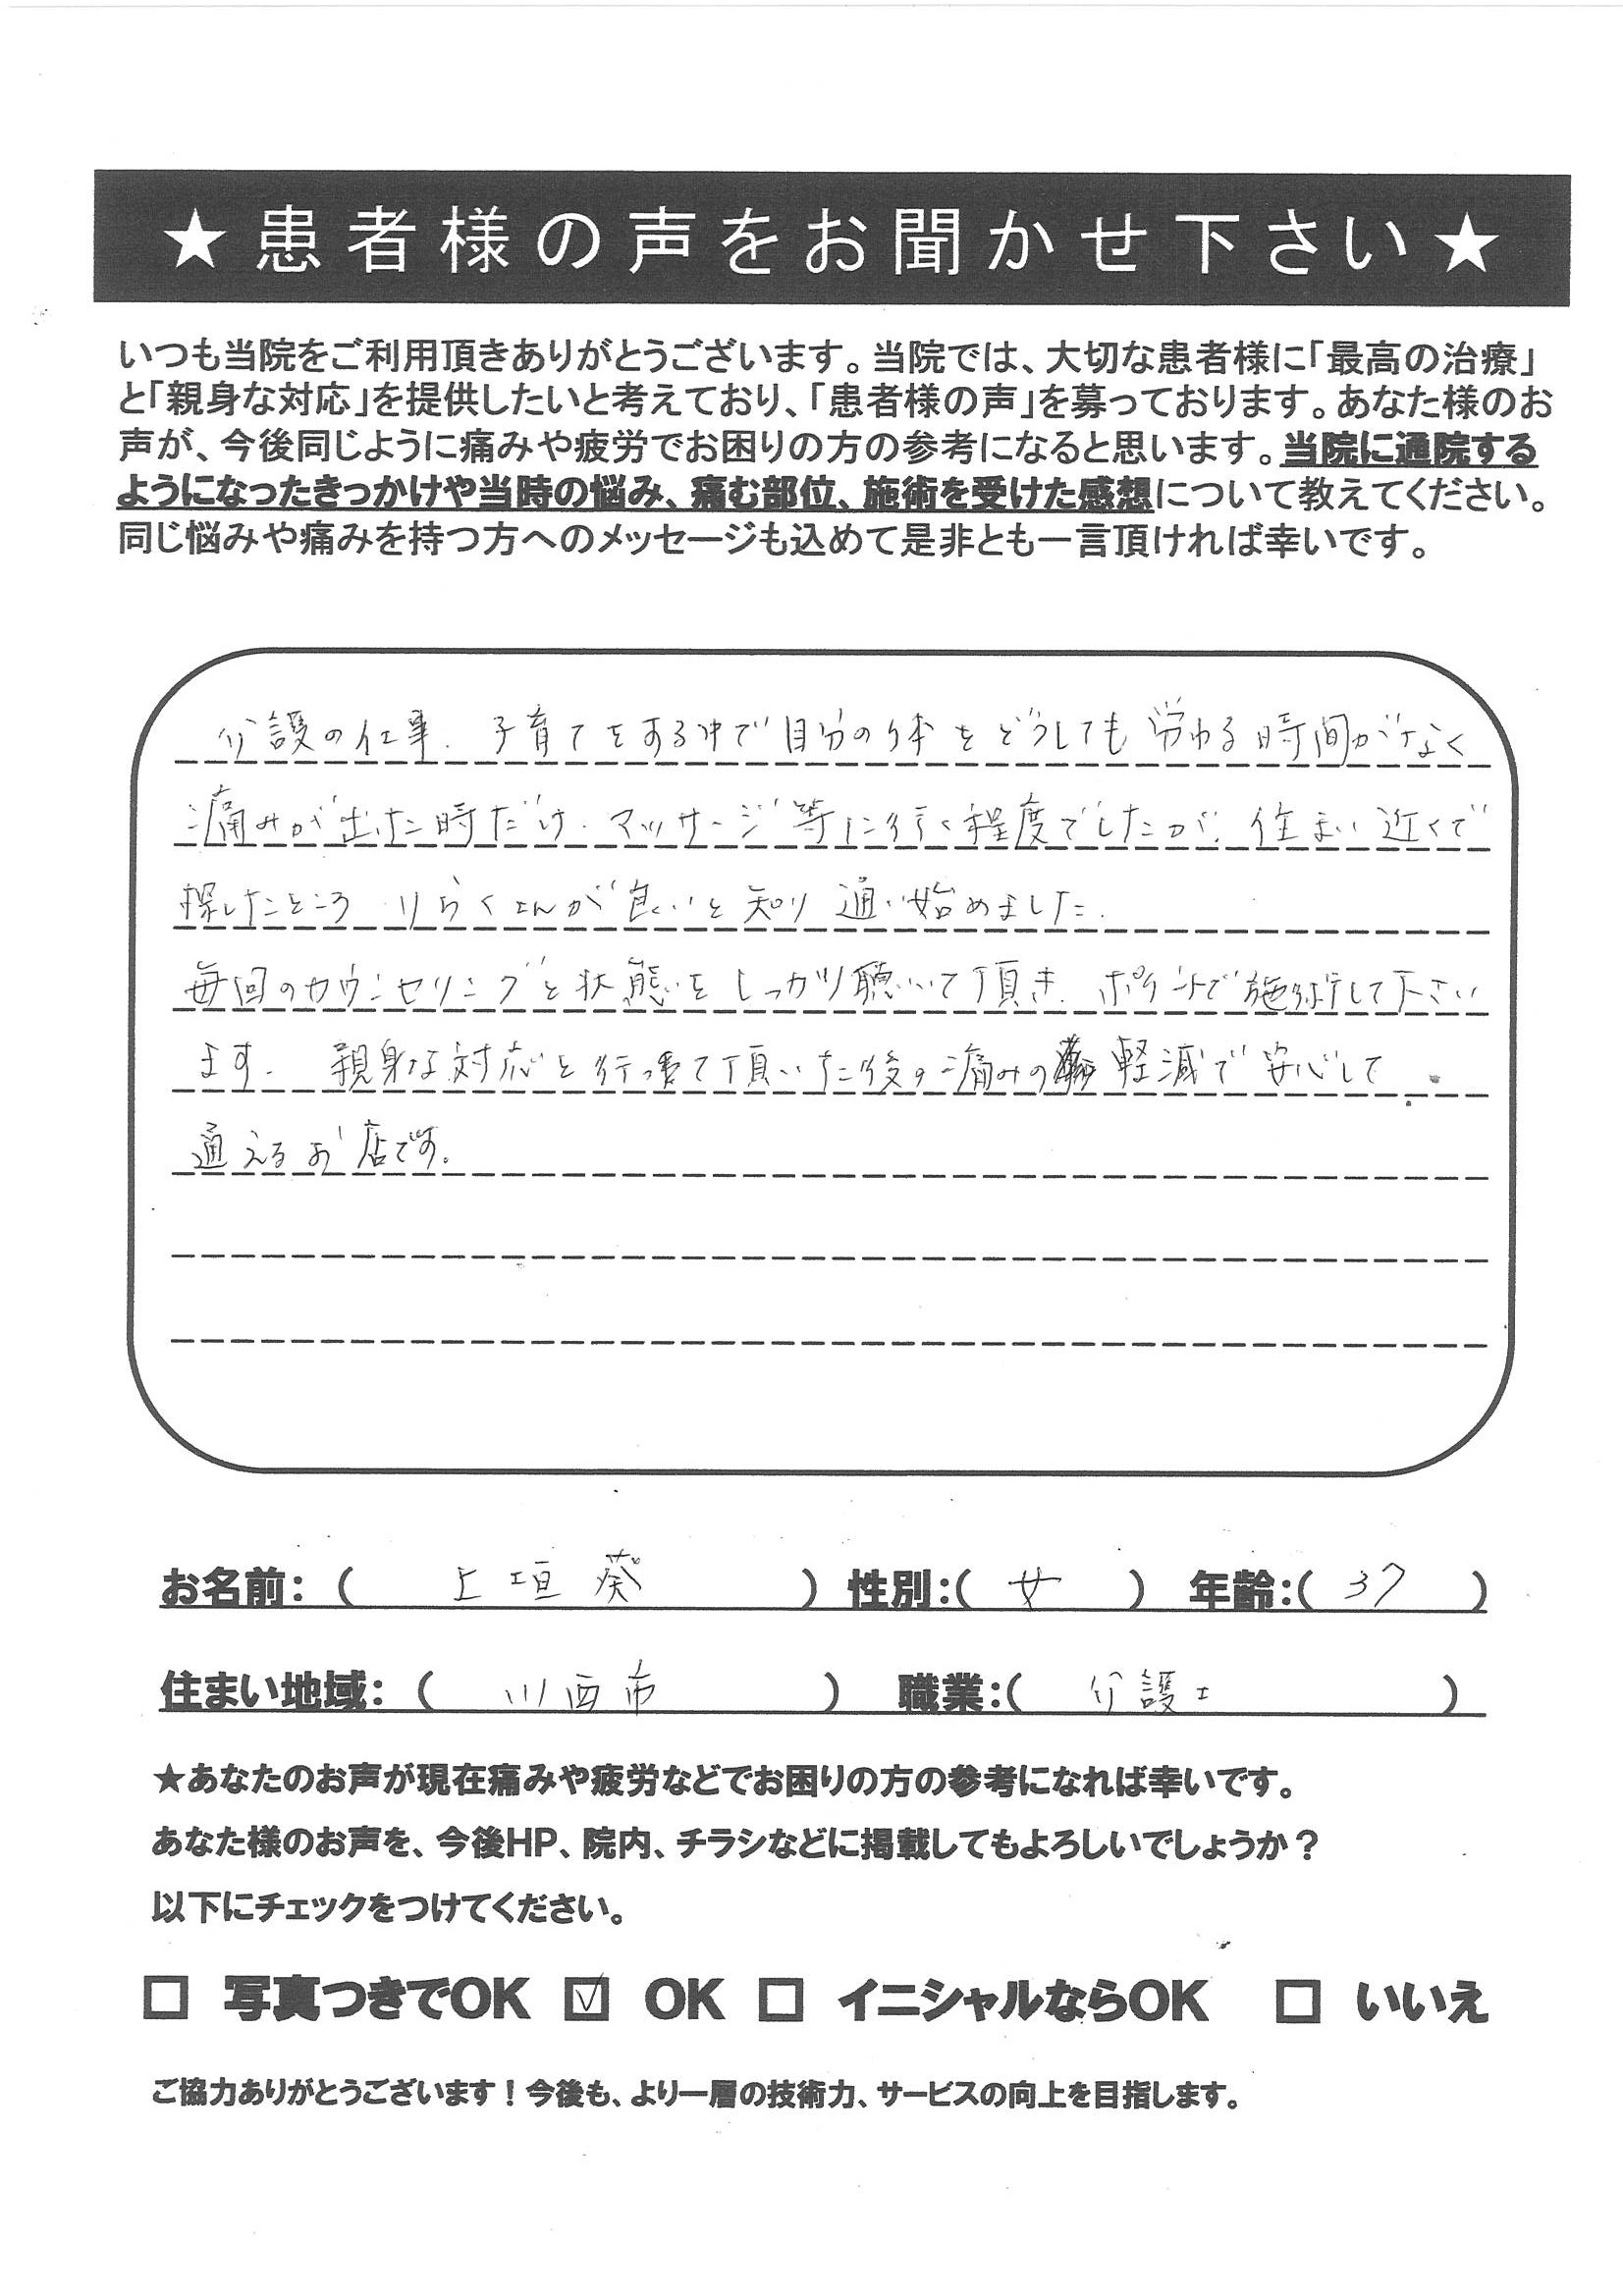 ★患者様の声をお聞かせ下さい★
いつも当院をご利用頂きありがとうございます。当院では、大切な患者様に「最高の治療」
と「親身な対応」を提供したいと考えており、「患者様の声」を募っております。あなた様のお
声が、今後同じように痛みや疲労でお困りの方の参考になると思います。当院に通院する
ようになったきっかけや当時の悩み、痛む部位、施術を受けた感想について教えてください。
同じ悩みや痛みを持つ方へのメッセージも込めて是非とも一言頂ければ幸いです。
介護の仕事、子育てをする中で自分の体をどうしても労わる時間がなく
痛みが出た時だけ、マッサージ等に行く程度でしたが、住まい近くで
探したところ りらくさんが良いと知り 通い始めました。
毎回のカウンセリングと状態をしっかり聴いて頂き、ポイントで施術して下さい
ます。 親身な対応と行って頂いた後の痛みの軽減で安心して
通えるお店です。
お名前：（ 上垣 葵 ） 性別：（ 女 ） 年齢：（ 37 ）
住まい地域：（ 川西市 ） 職業：（ 介護士 ）
★あなたのお声が現在痛みや疲労などでお困りの方の参考になれば幸いです。
あなた様のお声を、今後HP、院内、チラシなどに掲載してもよろしいでしょうか？
以下にチェックをつけてください。
□ 写真つきでOK ☑ OK □ イニシャルならOK □ いいえ
ご協力ありがとうございます！今後も、より一層の技術力、サービスの向上を目指します。